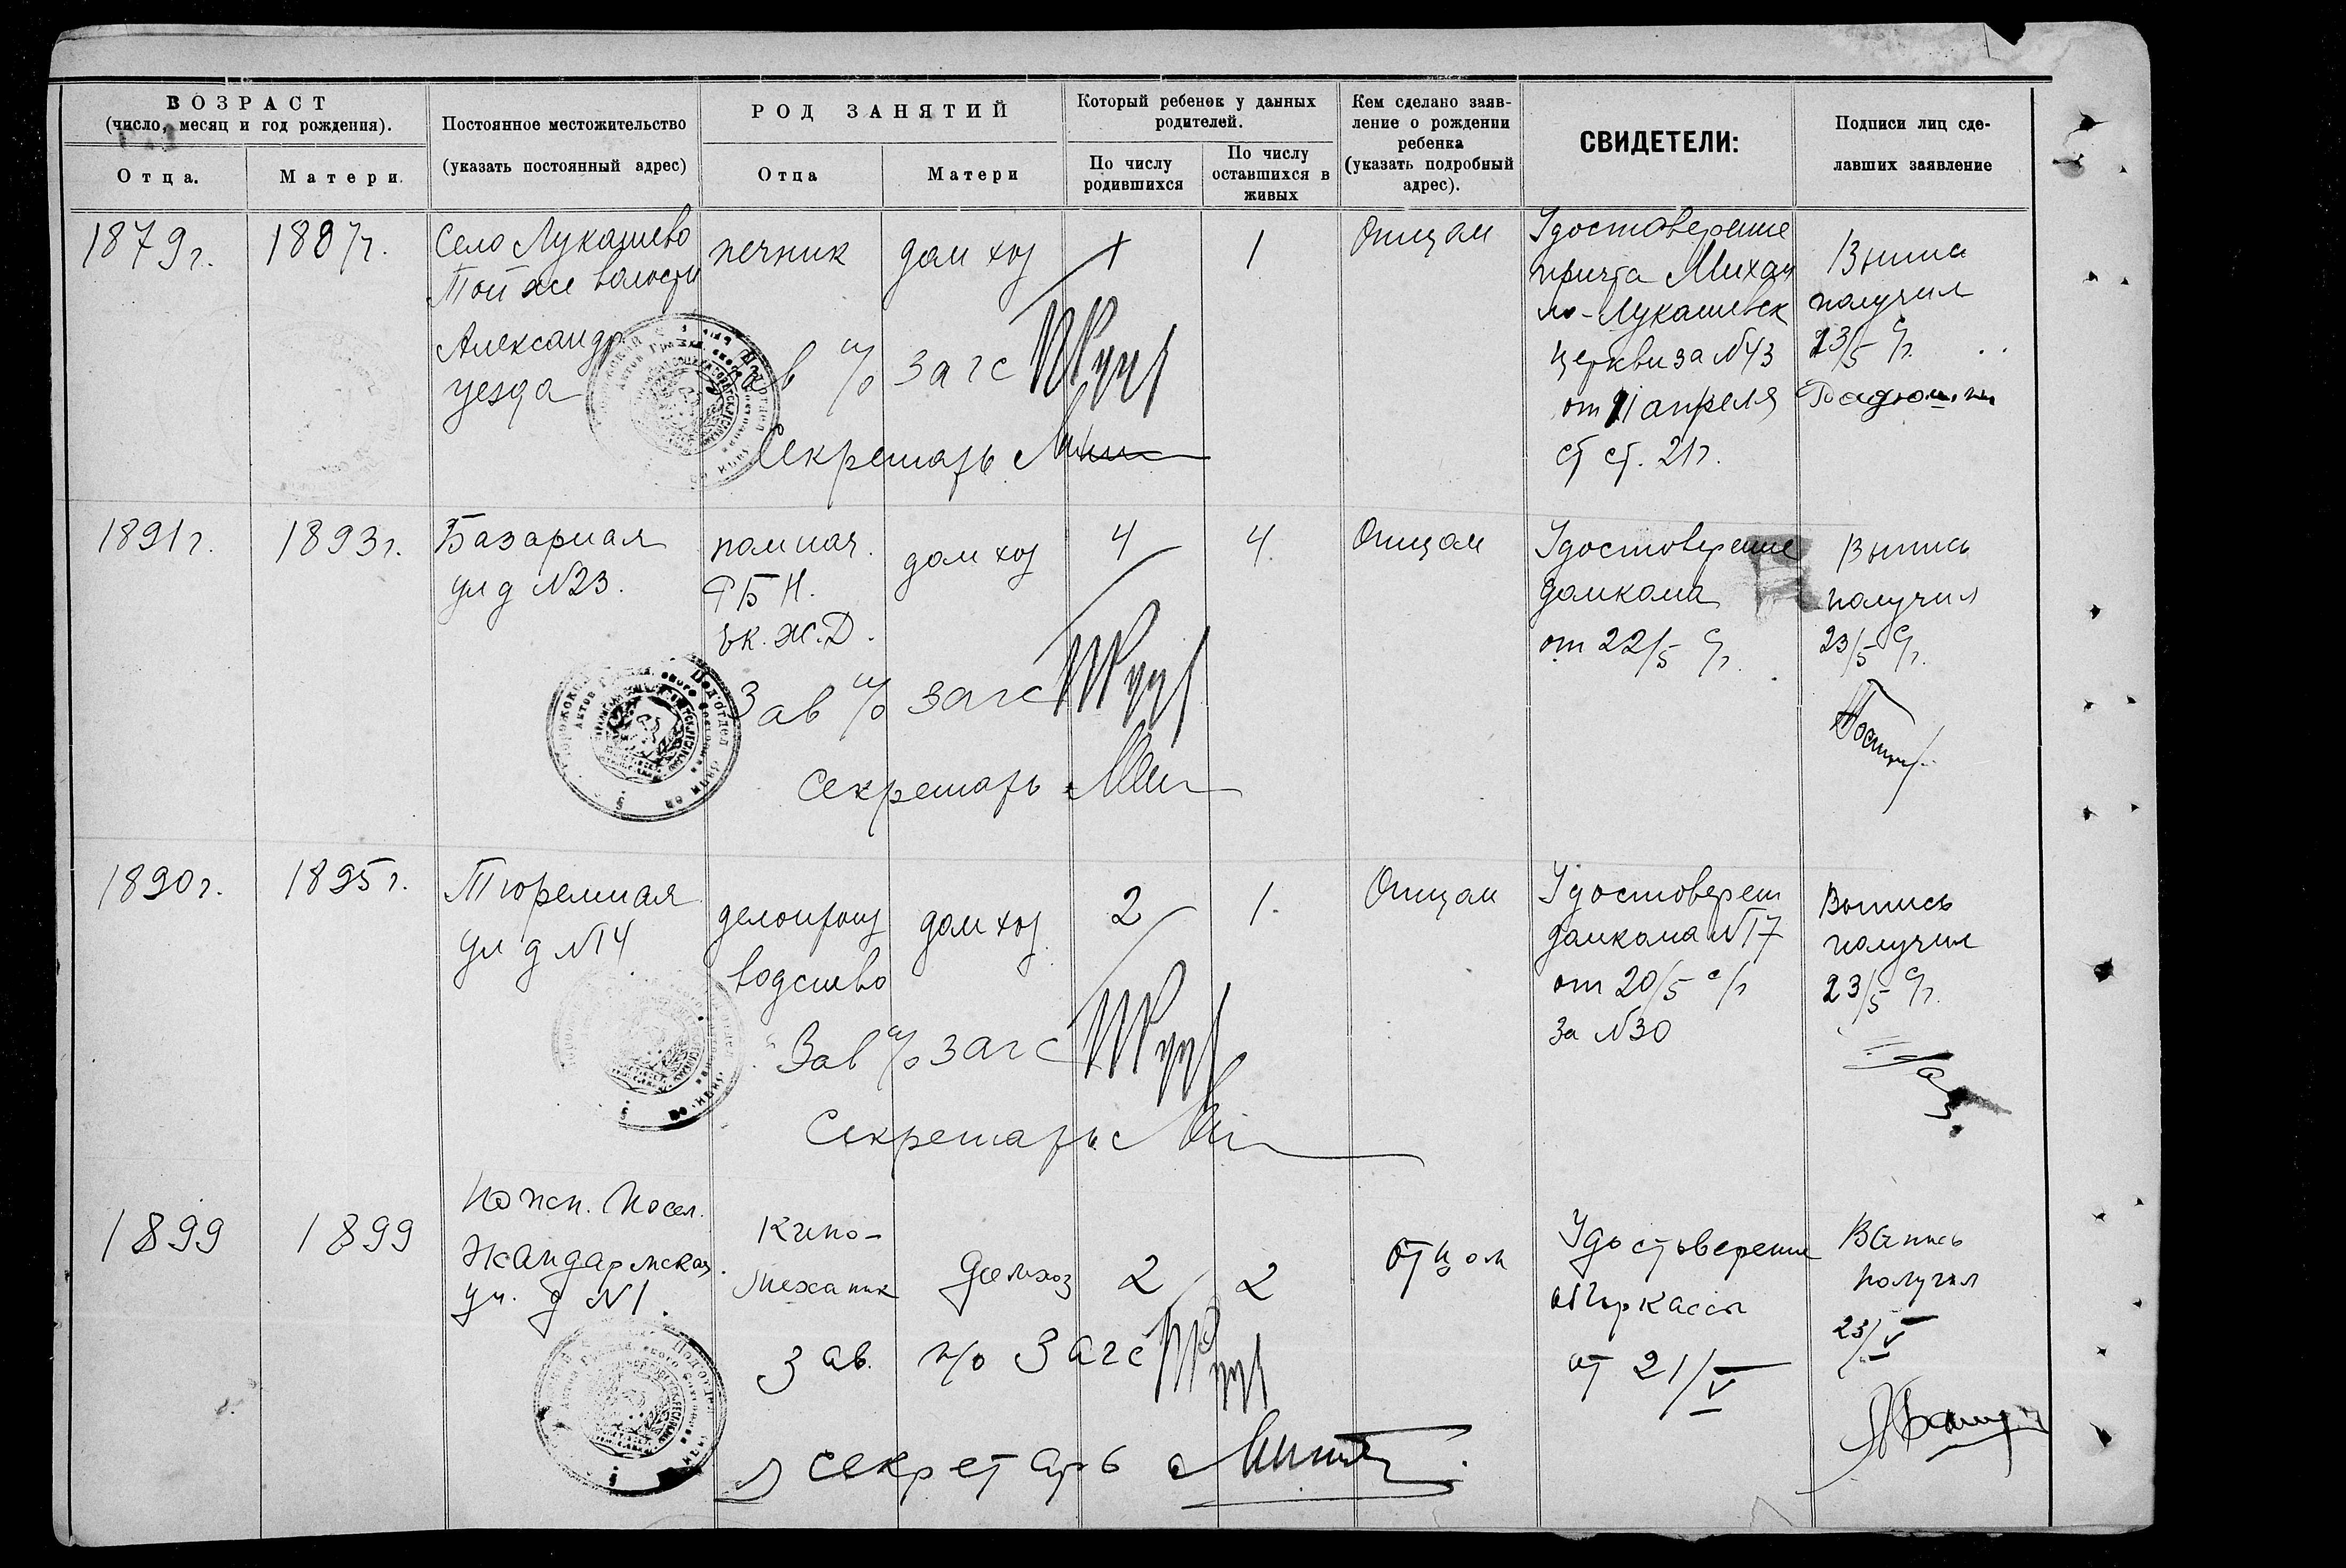 ВОЗРАСТ
(число, месяц и год рождения).
Отца.
Матери.
Постоянное местожительство
(указать постоянный адрес)
РОД ЗАНЯТИЙ
Отца
Матери
Который ребенок у данных
родителей.
По числу
родившихся
По числу
оставшихся в
живых
Кем сделано заяв-
ление о рождении
ребенка
(указать подробный
адрес).
СВИДЕТЕЛИ:
Подписи лиц сде-
лавших заявление
1879 г.
1887 г.
Село Лукашево
Той же волости
Александр
уезда
печник
дом хоз
1
1
Отцом
Удостоверение
причта Михай
ло-Лукашевск
церкви за №43
от 11 апреля
ст ст. 21 г.
Выпис
получил
23/5 с/г.
Зав п/о загс
Секретарь
1891 г.
1893 г.
Базарная
ул д №23.
пом нач.
Ек. Ж.Д.
дом хоз
4
4.
Отцом
Удостоверение
домкома
от 22/5 с/г.
Выпись
получил
23/5 с/г.
Зав п/о загс
Секретарь
1890 г.
1895 г.
Тюремная
ул д №14
делопроиз
водство
дом хоз.
2
1.
Отцом
Удостоверен
домкома №17
от 20/5 с/г
за №30
Выпись
получил
23/5 с/г.
Зав п/о загс
Секретарь
1899
1899
Посел.
Жандармская
ул. д №1.
Кино-
механик
домхоз
2
2
отцом
Удостоверение
от 21/V
Выпись
получил
23/V
Зав. п/о Загс
секретарь